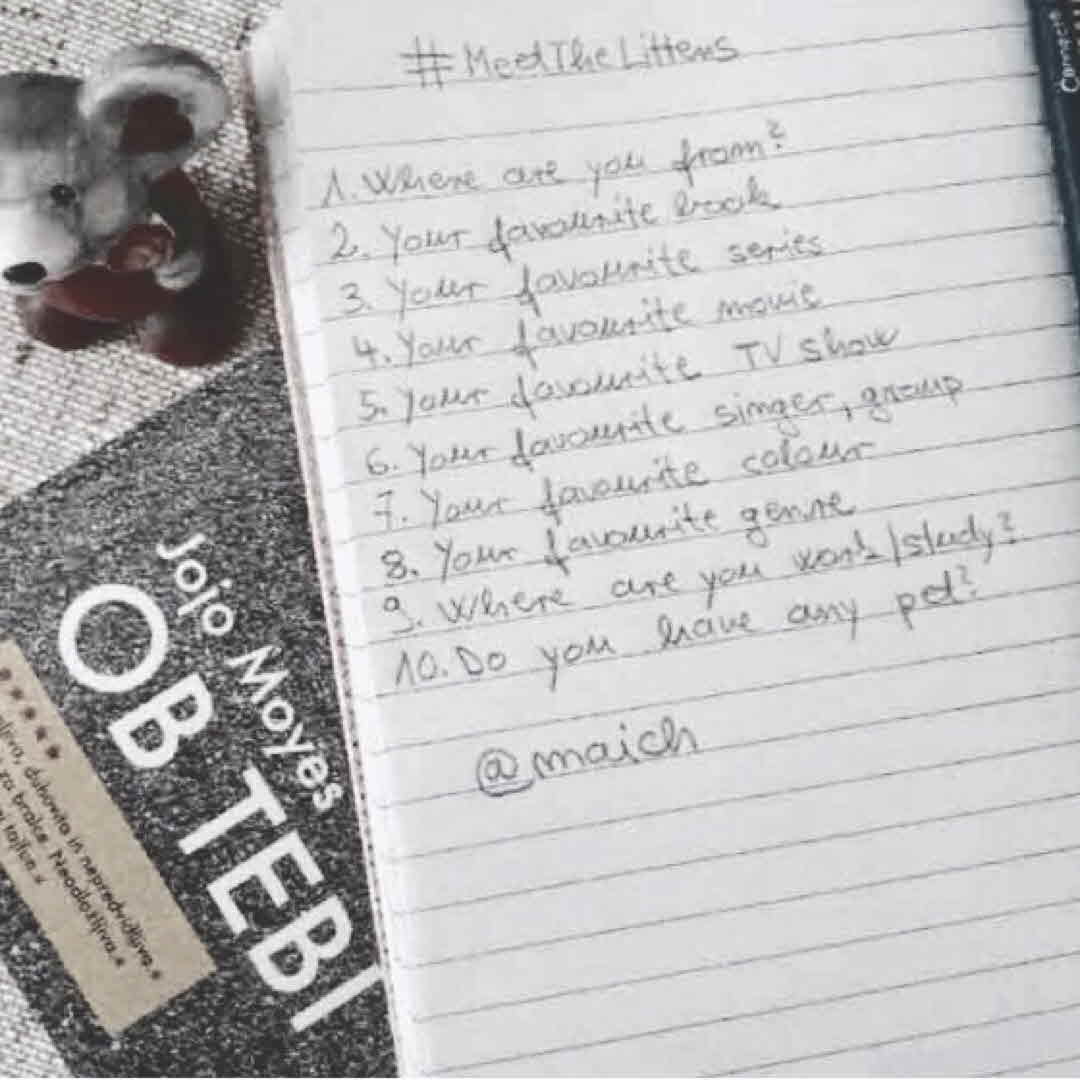 #MeetTheLittens
1. Where are you from?
2. Your favourite book
3. Your favourite series
4. Your favourite movie
5. Your favourite TV show
6. Your favourite singer, group
7. Your favourite colour
8. Your favourite genre
9. Where are you work/study?
10. Do you have any pet?
@maich
Jojo Moyes
OB TEBI
duhovita in nepredvidljiva.
za bralce. Neodložljiva.«
Connecte